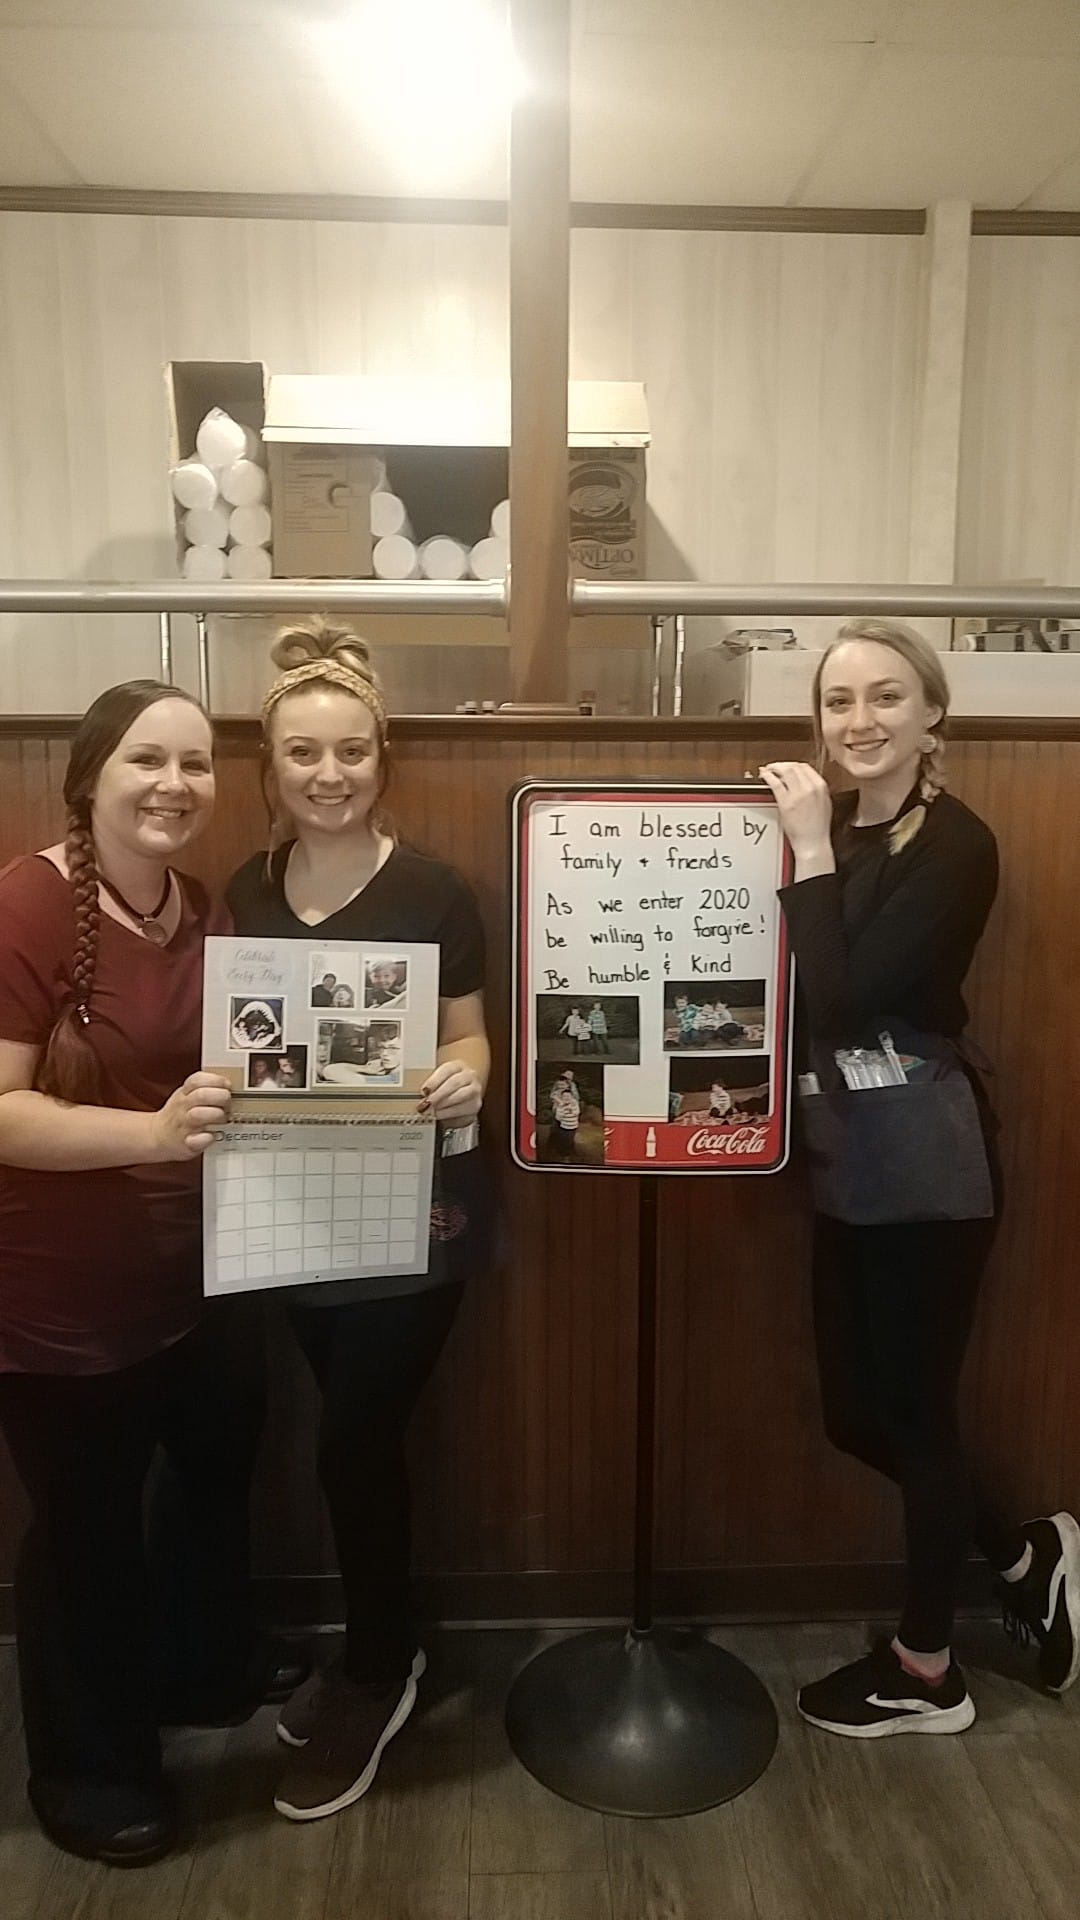 OPTIMA
I am blessed by
family + friends
As we enter 2020
be willing to forgive!
Be humble & Kind
Coca-Cola
Celebrate
Every Day
December 2020